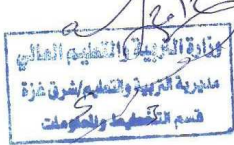 وزارة التربية والتعليم العالي
مديرية التربية والتعليم/شرق غزة
قسم التخطيط والمعلومات